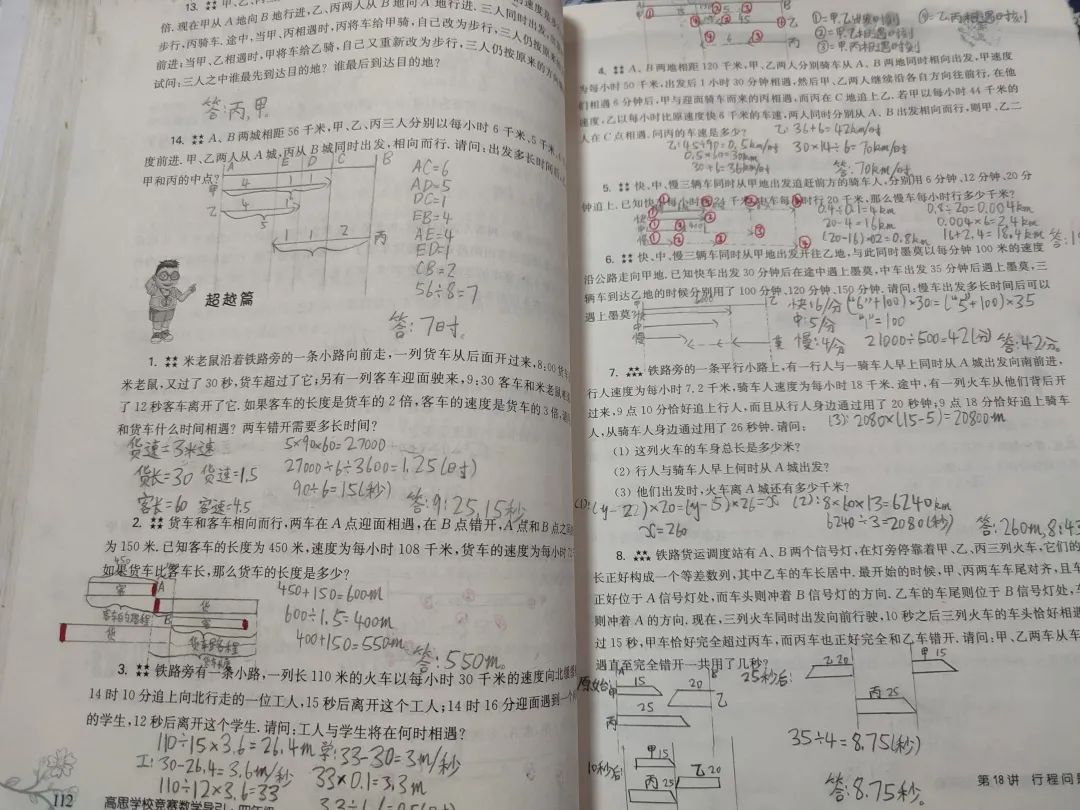 13.
倍. 现在甲从A地向B地行进,乙、丙两人从B地向A地行进. 三人同时出发,
步行,丙骑车. 途中,当甲、丙相遇时,丙将车给甲骑,自己改为步行,三人仍按原来
前进;当甲、乙相遇时,甲将车给乙骑,自己又重新改为步行,三人仍按原来的方向
试问:三人之中谁最先到达目的地? 谁最后到达目的地?
答:丙,甲。
14. ★★ A、B两城相距56千米,甲、乙、丙三人分别以每小时6千米、5千米、
度前进. 甲、乙两人从A城,丙从B城同时出发,相向而行. 请问:出发多长时间后,
甲和丙的中点?
A E D C B
甲 4 1 1
乙 4 1
5
1 1 2 丙
AC=6
AD=5
DC=1
EB=4
AE=4
ED=1
CB=2
56÷8=7
答:7时。
超越篇
1. ★★ 米老鼠沿着铁路旁的一条小路向前走,一列货车从后面开过来,8:00货车
米老鼠,又过了30秒,货车超过了它;另有一列客车迎面驶来,9:30客车和米老鼠
了12秒客车离开了它. 如果客车的长度是货车的2倍,客车的速度是货车的3倍,请问
和货车什么时间相遇? 两车错开需要多长时间?
货速=3米速
货长=30 货速=1.5
客长=60 客速=4.5
5×90×60=27000
27000÷6÷3600=1.25(时)
90÷6=15(秒)
答:9:25,15秒
2. ★★ 货车和客车相向而行,两车在A点迎面相遇,在B点错开,A点和B点之
为150米. 已知客车的长度为450米,速度为每小时108千米,货车的速度为每小时72
如果货车比客车长,那么货车的长度是多少?
450 A
客 货
B
客
货
450+150=600m
600÷1.5=400m
400+150=550m
答:550m。
3. ★★ 铁路旁有一条小路,一列长110米的火车以每小时30千米的速度向北
14时10分追上向北行走的一位工人,15秒后离开这个工人;14时16分迎面遇到一个
的学生,12秒后离开这个学生. 请问:工人与学生将在何时相遇?
110÷15×3.6=26.4m
工:30-26.4=3.6m/秒
110÷12×3.6=33
学:33-30=3m/秒
33×0.1=3.3m
112 高思学校竞赛数学导引·四年级
45 乙
6 丙
①=甲,乙出发时刻 ④=乙,丙相遇时刻
②=甲,乙相遇时刻
③=甲,丙相遇时刻
4. ★★ A、B两地相距120千米,甲、乙两人分别骑车从A、B两地同时相向出发,甲速度
为每小时50千米,出发后1小时30分钟相遇,然后甲、乙两人继续沿各自方向往前行,在他
们相遇6分钟后,甲与迎面骑车而来的丙相遇,而丙在C地追上乙. 若甲以每小时44千米的
速度,乙以每小时比原速度快6千米的车速,两人同时分别从A、B出发相向而行,则甲、乙二
人在C点相遇. 问丙的车速是多少?
乙:36+6=42km/时
乙:45÷90=0.5km/时
0.5×60=30km
30+6=36km/时
30×14÷6=70km/时
答:70km/时
5. ★★ 快、中、慢三辆车同时从甲地出发追赶前方的骑车人,分别用6分钟、12分钟、20分
钟追上. 已知快车每小时行24千米,中车每小时行20千米,那么慢车每小时行多少千米?
快
中
慢
0.4÷0.1=4km
20-4=16km
(20-16)×0.2=0.8km
0.8÷20=0.004km
0.004×6=2.4km
16+2.4=18.4km
6. ★★ 快、中、慢三辆车同时从甲地出发开往乙地,与此同时墨莫以每分钟100米的速度
沿公路走向甲地. 已知快车出发30分钟后在途中遇上墨莫,中车出发35分钟后遇上墨莫,三
辆车到达乙地的时候分别用了100分钟、120分钟、150分钟. 请问:慢车出发多长时间后可以
遇上墨莫?
甲 600 乙
快
中
慢 莫
快:6/分
中:5/分
慢:4/分
("6"+100)×30=("5"+100)×35
"1"=100
21000÷500=42(分)
答:42分。
7. ★★ 铁路旁的一条平行小路上,有一行人与一骑车人早上同时从A城出发向南前进,
行人速度为每小时7.2千米,骑车人速度为每小时18千米. 途中,有一列火车从他们背后开
过来,9点10分恰好追上行人,而且从行人身边通过用了20秒钟;9点18分恰好追上骑车
人,从骑车人身边通过用了26秒钟. 请问:
(3):2080×(15-5)=20800m
(1)这列火车的车身总长是多少米?
(2)行人与骑车人早上何时从A城出发?
(3)他们出发时,火车离A城还有多少千米?
(1):(y-2)×20=(y-5)×26=x
x=260
(2):8×60×13=6240km
6240÷3=2080(秒)
答:260m,8:43
8. ★★★ 铁路货运调度站有A、B两个信号灯,在灯旁停靠着甲、乙、丙三列火车,它们的
长正好构成一个等差数列,其中乙车的车长居中. 最开始的时候,甲、丙两车车尾对齐,且车
正好位于A信号灯处,而车头则冲着B信号灯的方向. 乙车的车尾则位于B信号灯处,车
则冲着A的方向. 现在,三列火车同时出发向前行驶,10秒之后三列火车的车头恰好相遇
过15秒,甲车恰好完全超过丙车,而丙车也正好完全和乙车错开. 请问:甲、乙两车从车
遇直至完全错开一共用了几秒?
原始:
A B
甲 15
20 乙
丙 25
10秒后:
甲15
丙25 乙20
25秒后:
乙20
甲15
丙25
35÷4=8.75(秒)
答:8.75秒。
第18讲 行程问题